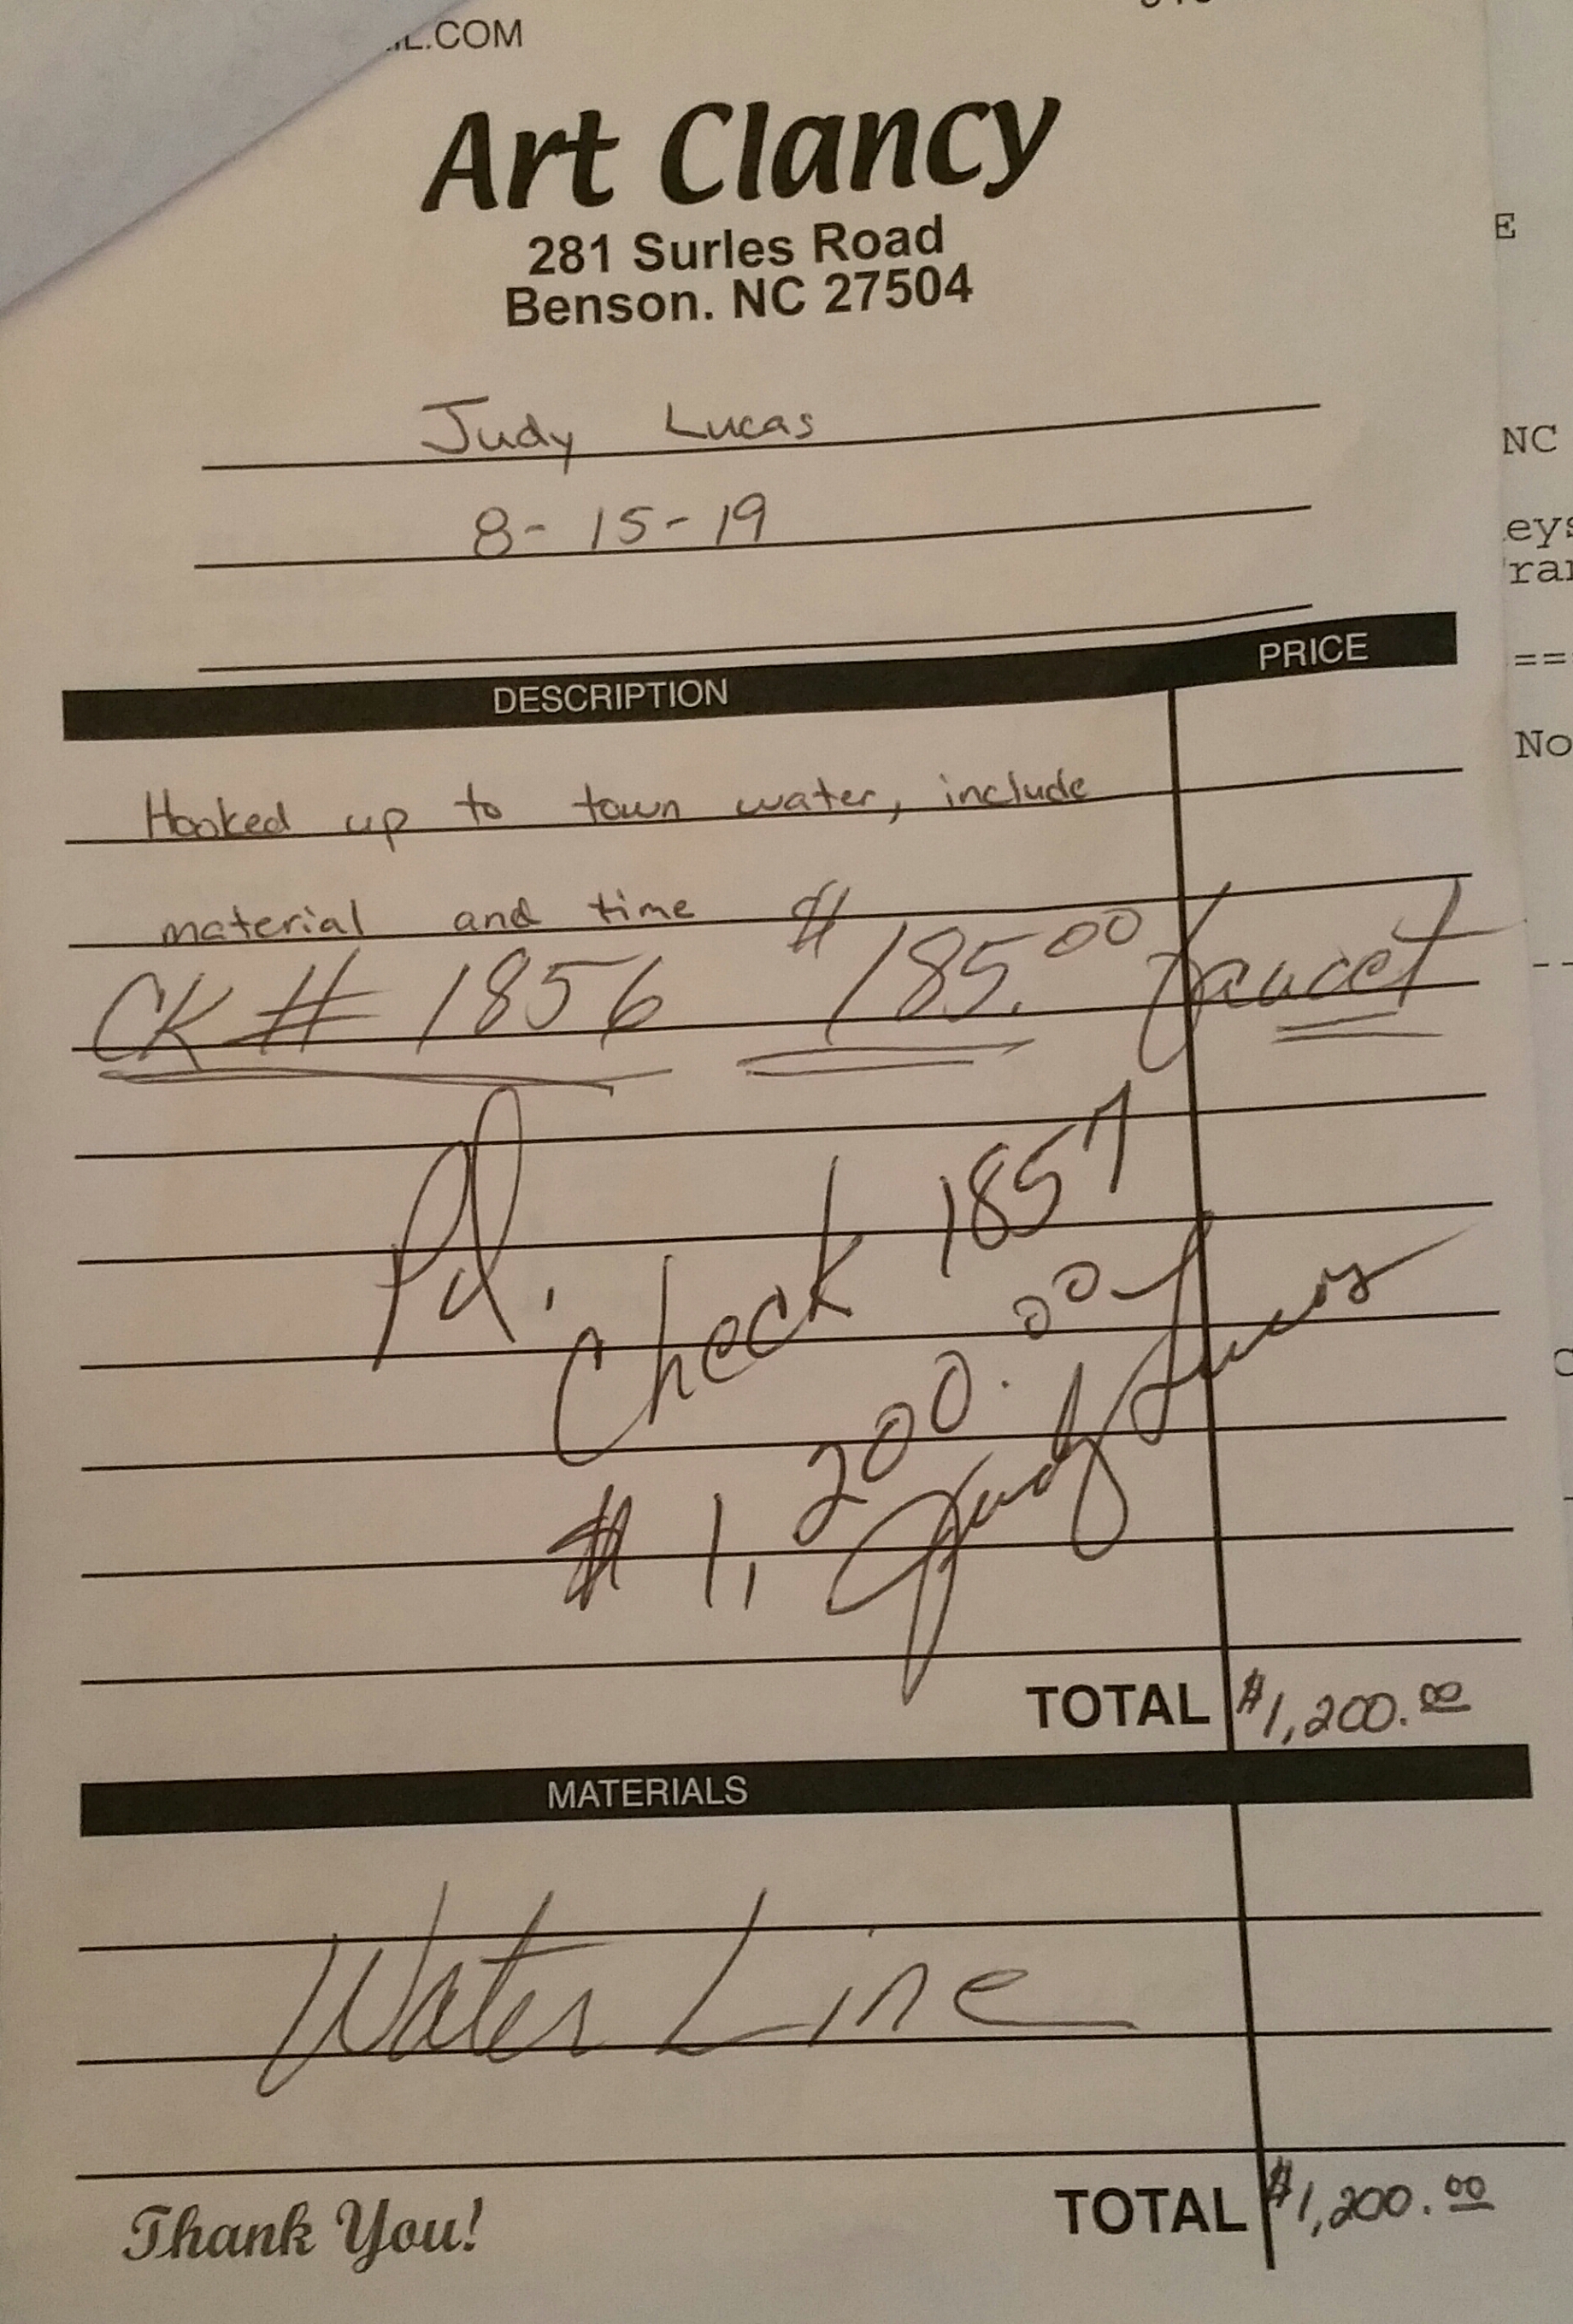 L.COM
Art Clancy
281 Surles Road
Benson. NC 27504
Judy Lucas
8-15-19
DESCRIPTION PRICE
Hooked up to town water, include
material and time
CK # 1856 $185.00 faucet
Pd. Check 1857
$1,200.00
Judy Lucas
TOTAL $1,200.00
MATERIALS
Water Line
Thank You! TOTAL $1,200.00
E
NC
eys
ran
==
No
--